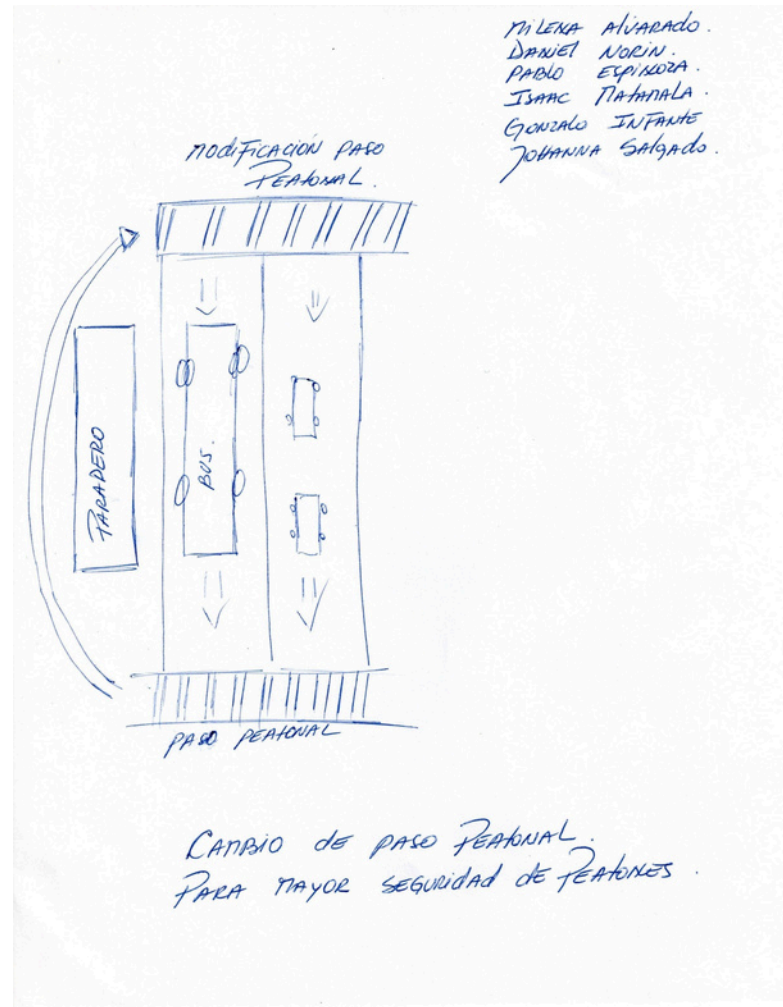 MILENA ALVARADO.
DANIEL NORIN.
PABLO ESPINOZA.
ISAAC MATAMALA.
GONZALO INFANTE
JOHANNA SALGADO.
MODIFICACIÓN PASO
PEATONAL.
PARADERO
BUS.
PASO PEATONAL
CAMBIO DE PASO PEATONAL.
PARA MAYOR SEGURIDAD DE PEATONES.